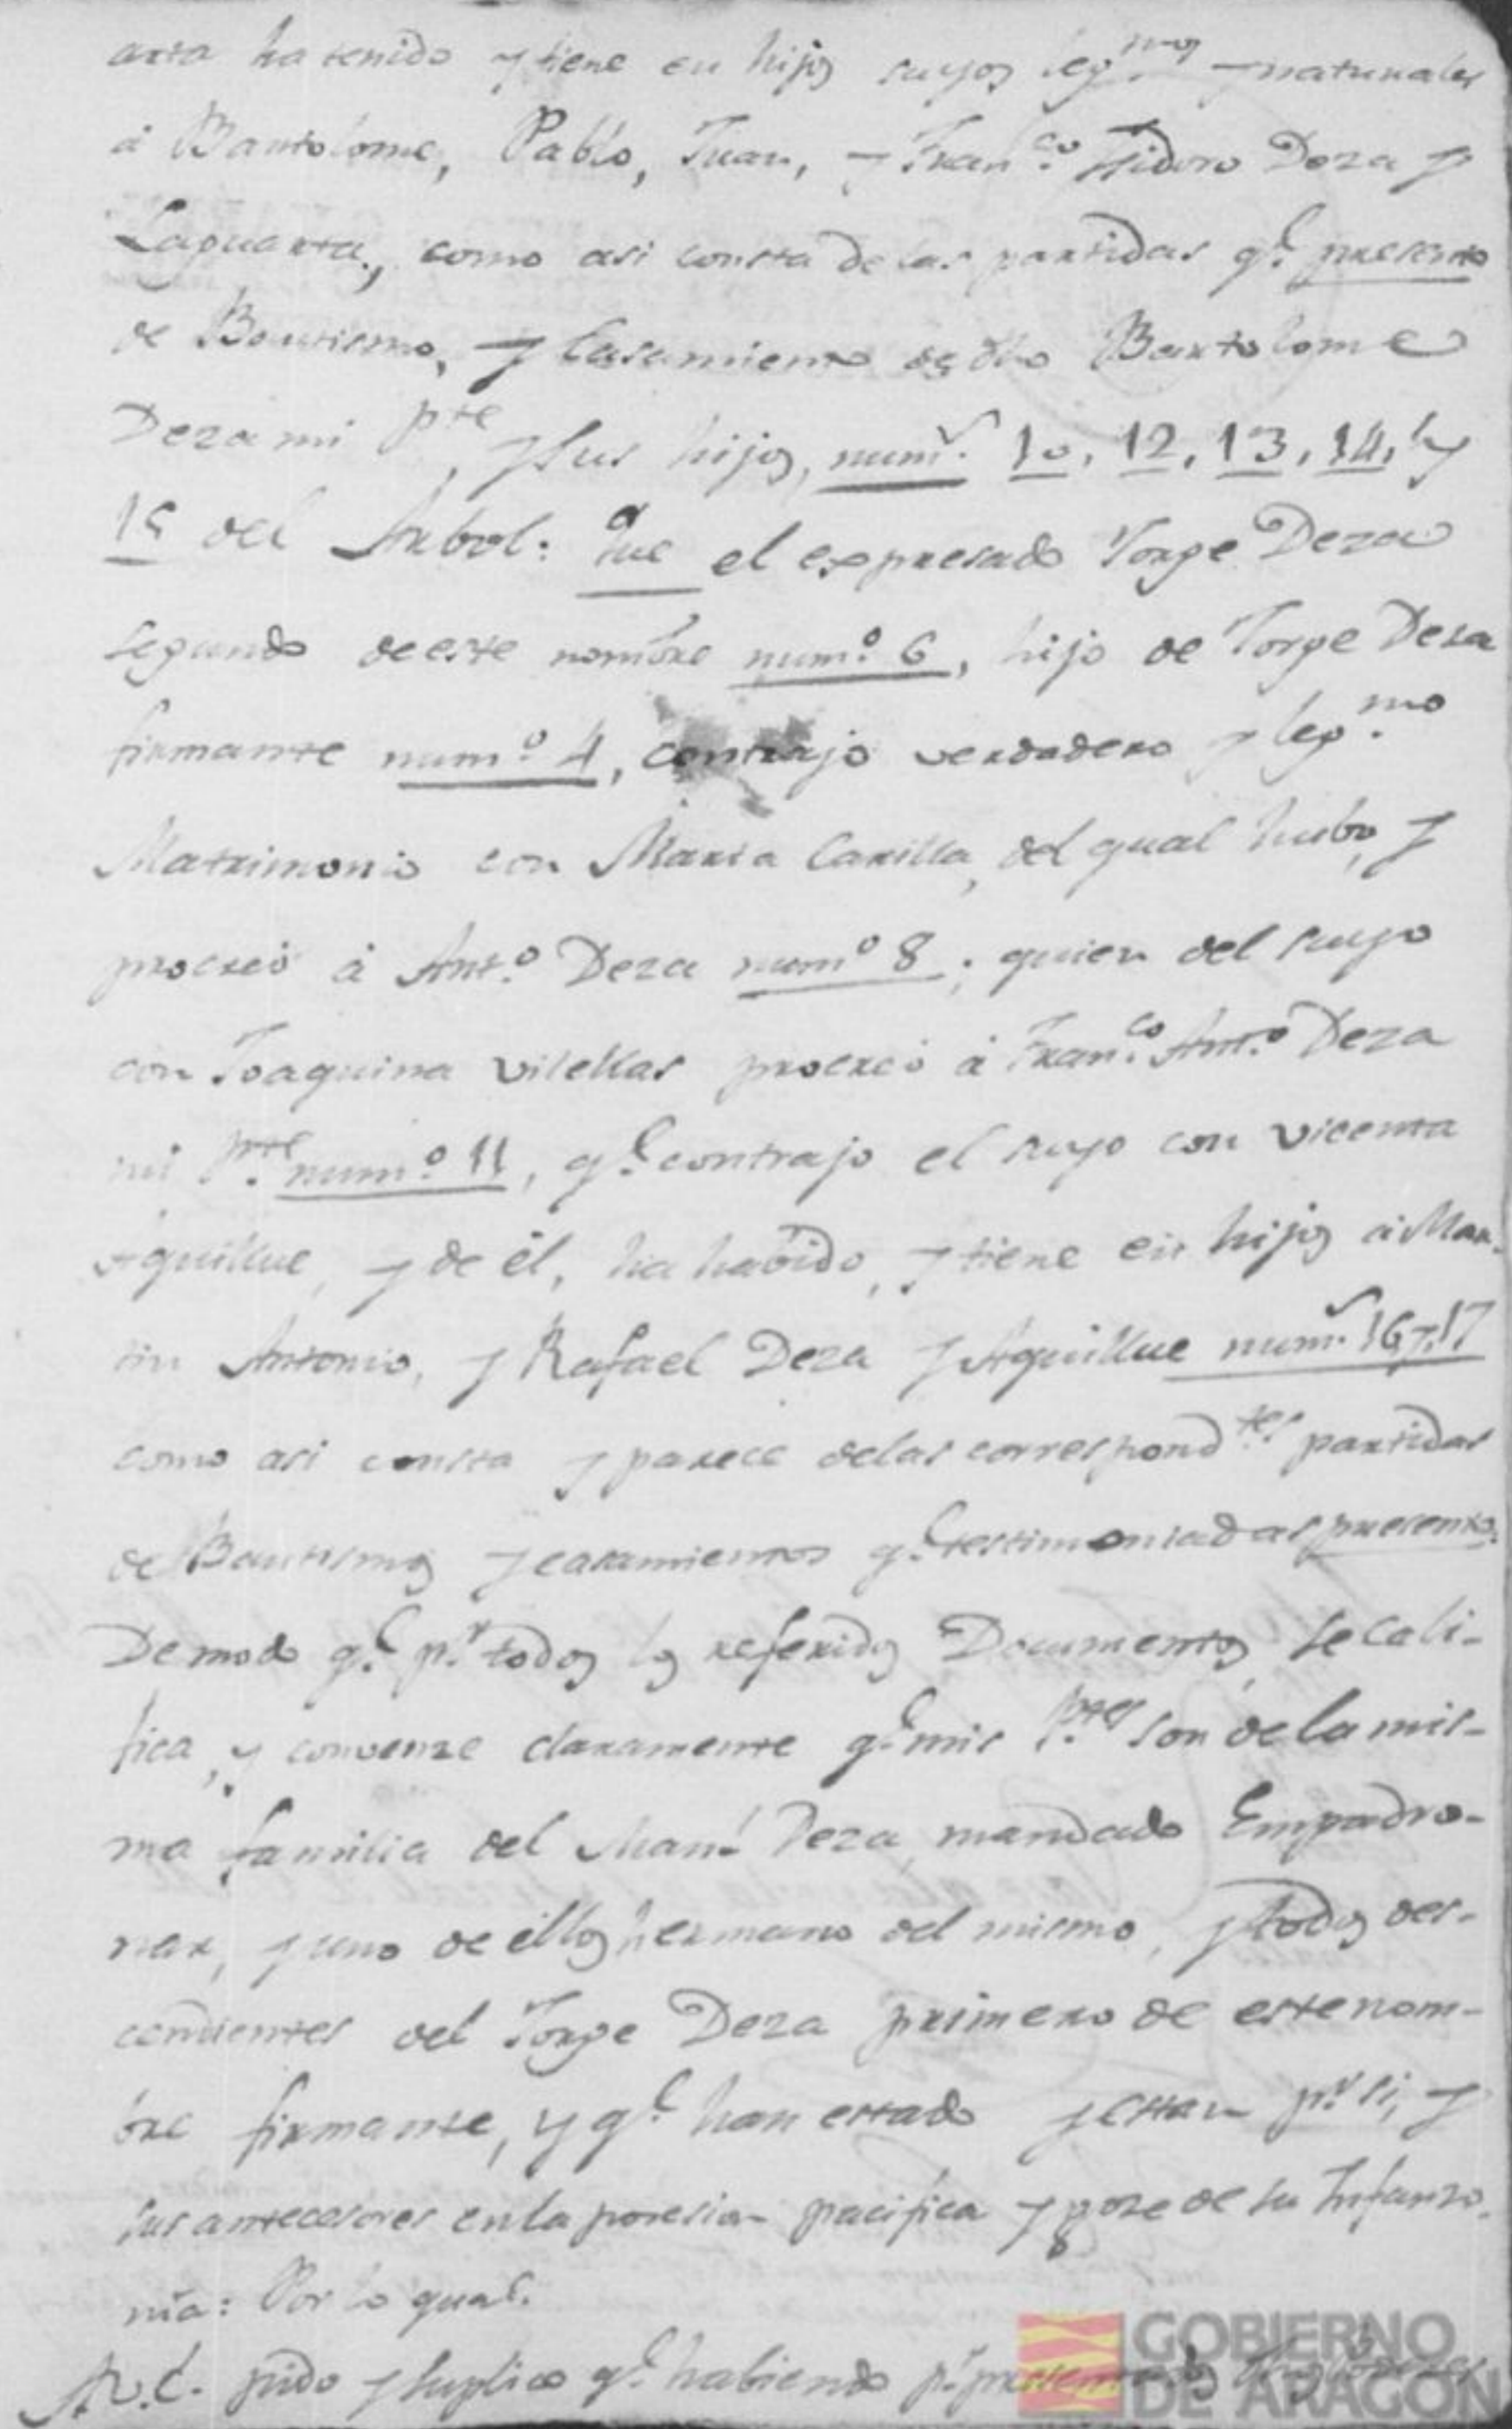 arta ha tenido y tiene en hijos suyos leg.mos y naturales
á Bartolome, Pablo, Juan, y Fran.co Ysidoro Deza y
Lapuerta, como asi consta de las partidas q.e presento
de Bautismo, y Casamiento de dho Bartolome
Deza mi p.te, y sus hijos, num.s 10, 12, 13, 14, y
15 del Arbol: Que el expresado Jorge Deza
segundo de este nombre num.o 6, hijo de Jorge Deza
firmante num.o 4, contrajo verdadero y leg.mo
Matrimonio con Maria Carilla, del qual hubo, y
procreó á Ant.o Deza num.o 8; quien del suyo
con Joaquina Vilellas procreó á Fran.co Ant.o Deza
mi p.te num.o 11, q.e contrajo el suyo con Vicenta
Aquillue, y de él, ha habido, y tiene en hijos á Mar-
tin Antonio, y Rafael Deza y Aquillue num.s 16 y 17
como asi consta y parece de las correspond.tes partidas
de Bautismos y casamientos q.e testimoniadas presento.
De modo q.e p.r todos los referidos Documentos, se cali-
fica, y convenze claramente q.e mis p.tes son de la mis-
ma familia del Man.l Deza, mandado Empadro-
nar, y uno de ellos hermano del mismo, y todos des-
cendientes del Jorge Deza primero de este nom-
bre firmante, y q.e han estado y estan p.r si, y
sus antecesores en la posesion pacifica y goze de su Infanzo-
nia: Por lo qual.
A V.E. pido y suplico q.e habiendo p.r presentados
GOBIERNO
DE ARAGON